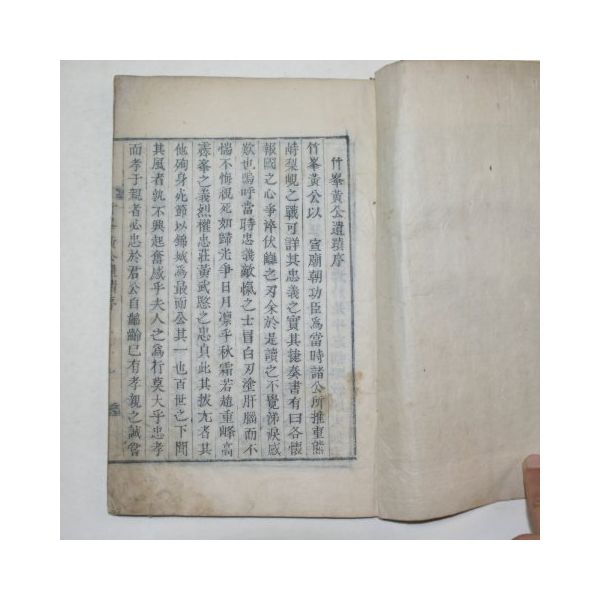 竹峯黃公遺蹟序
竹峯黃公以 宣廟朝功臣爲當時諸公所推重熊
峙梨峴之戰可詳其忠義之實其捷奏書有曰各懷
報國之心爭淬伏讎之刃余於是讀之不覺涕淚感
歎也嗚呼當時忠義敵愾之士冒白刃塗肝腦而不
惴不悔視死如歸光爭日月凜乎秋霜若趙重峰高
霽峯之義烈權忠莊黃武愍之忠貞此其拔尤者其
他殉身死節以錦城爲最而公其一也百世之下聞
其風者孰不興起奮感乎夫人之爲行莫大乎忠孝
而孝于親者必忠於君公自齠齡已有孝親之誠嘗